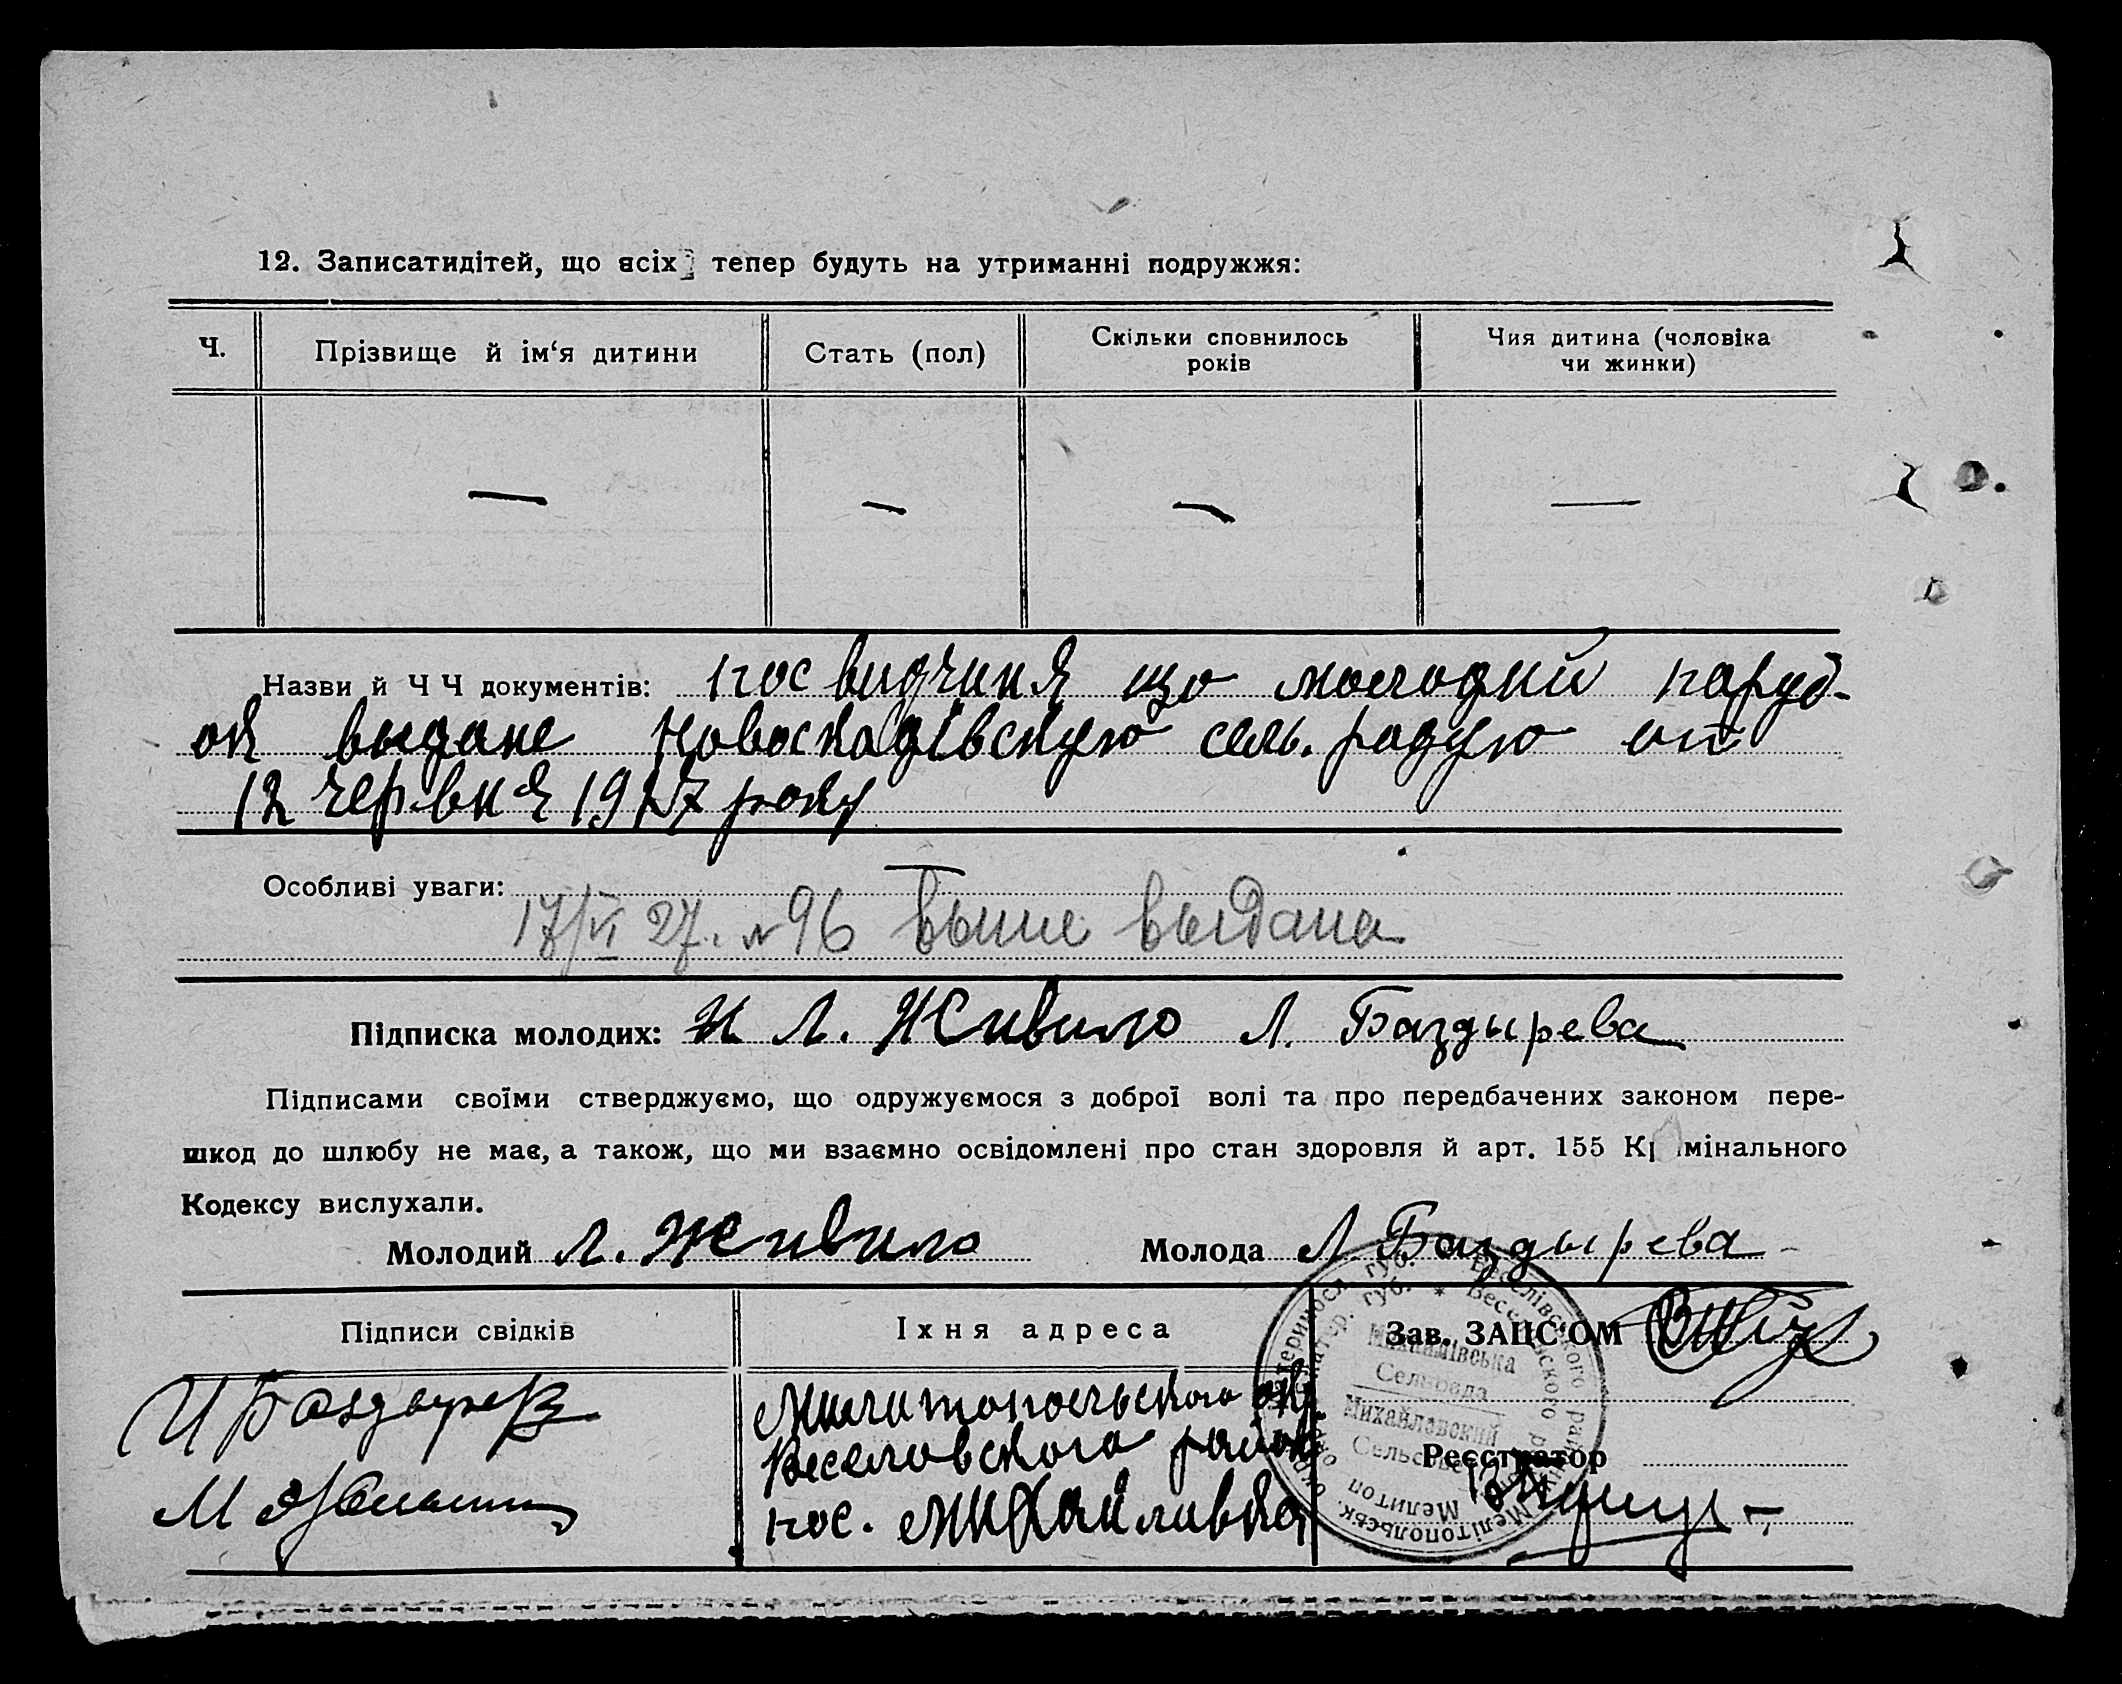 12. Записатидітей, що всіх тепер будуть на утриманні подружжя:
Ч.
Прізвище й ім‘я дитини
Стать (пол)
Скільки сповнилось
років
Чия дитина (чоловіка
чи жинки)
— — — —
Назви й Ч Ч документів: посвидчиня що молодий паруб-
ок выдане сель. радую от
12 червня 1927 року
Особливі уваги:
17/VI 27. № 96 выдана
Підписка молодих: И Л. Живило Л. Баздырева
Підписами своїми стверджуємо, що одружуємося з доброї волі та про передбачених законом пере-
шкод до шлюбу не має, а також, що ми взаємно освідомлені про стан здоровля й арт. 155 Кр мінального
Кодексу вислухали.
Молодий Л. Живило Молода Л Баздырева
Підписи свідків
Їхня адреса
Зав. ЗАПС‘ОМ
И Баздырев
М
Милитопольского окр.
Веселовского район
пос. Михайливка
Реєстратор
Михайлівська
Сельрада
Михайловский
Сельсовет